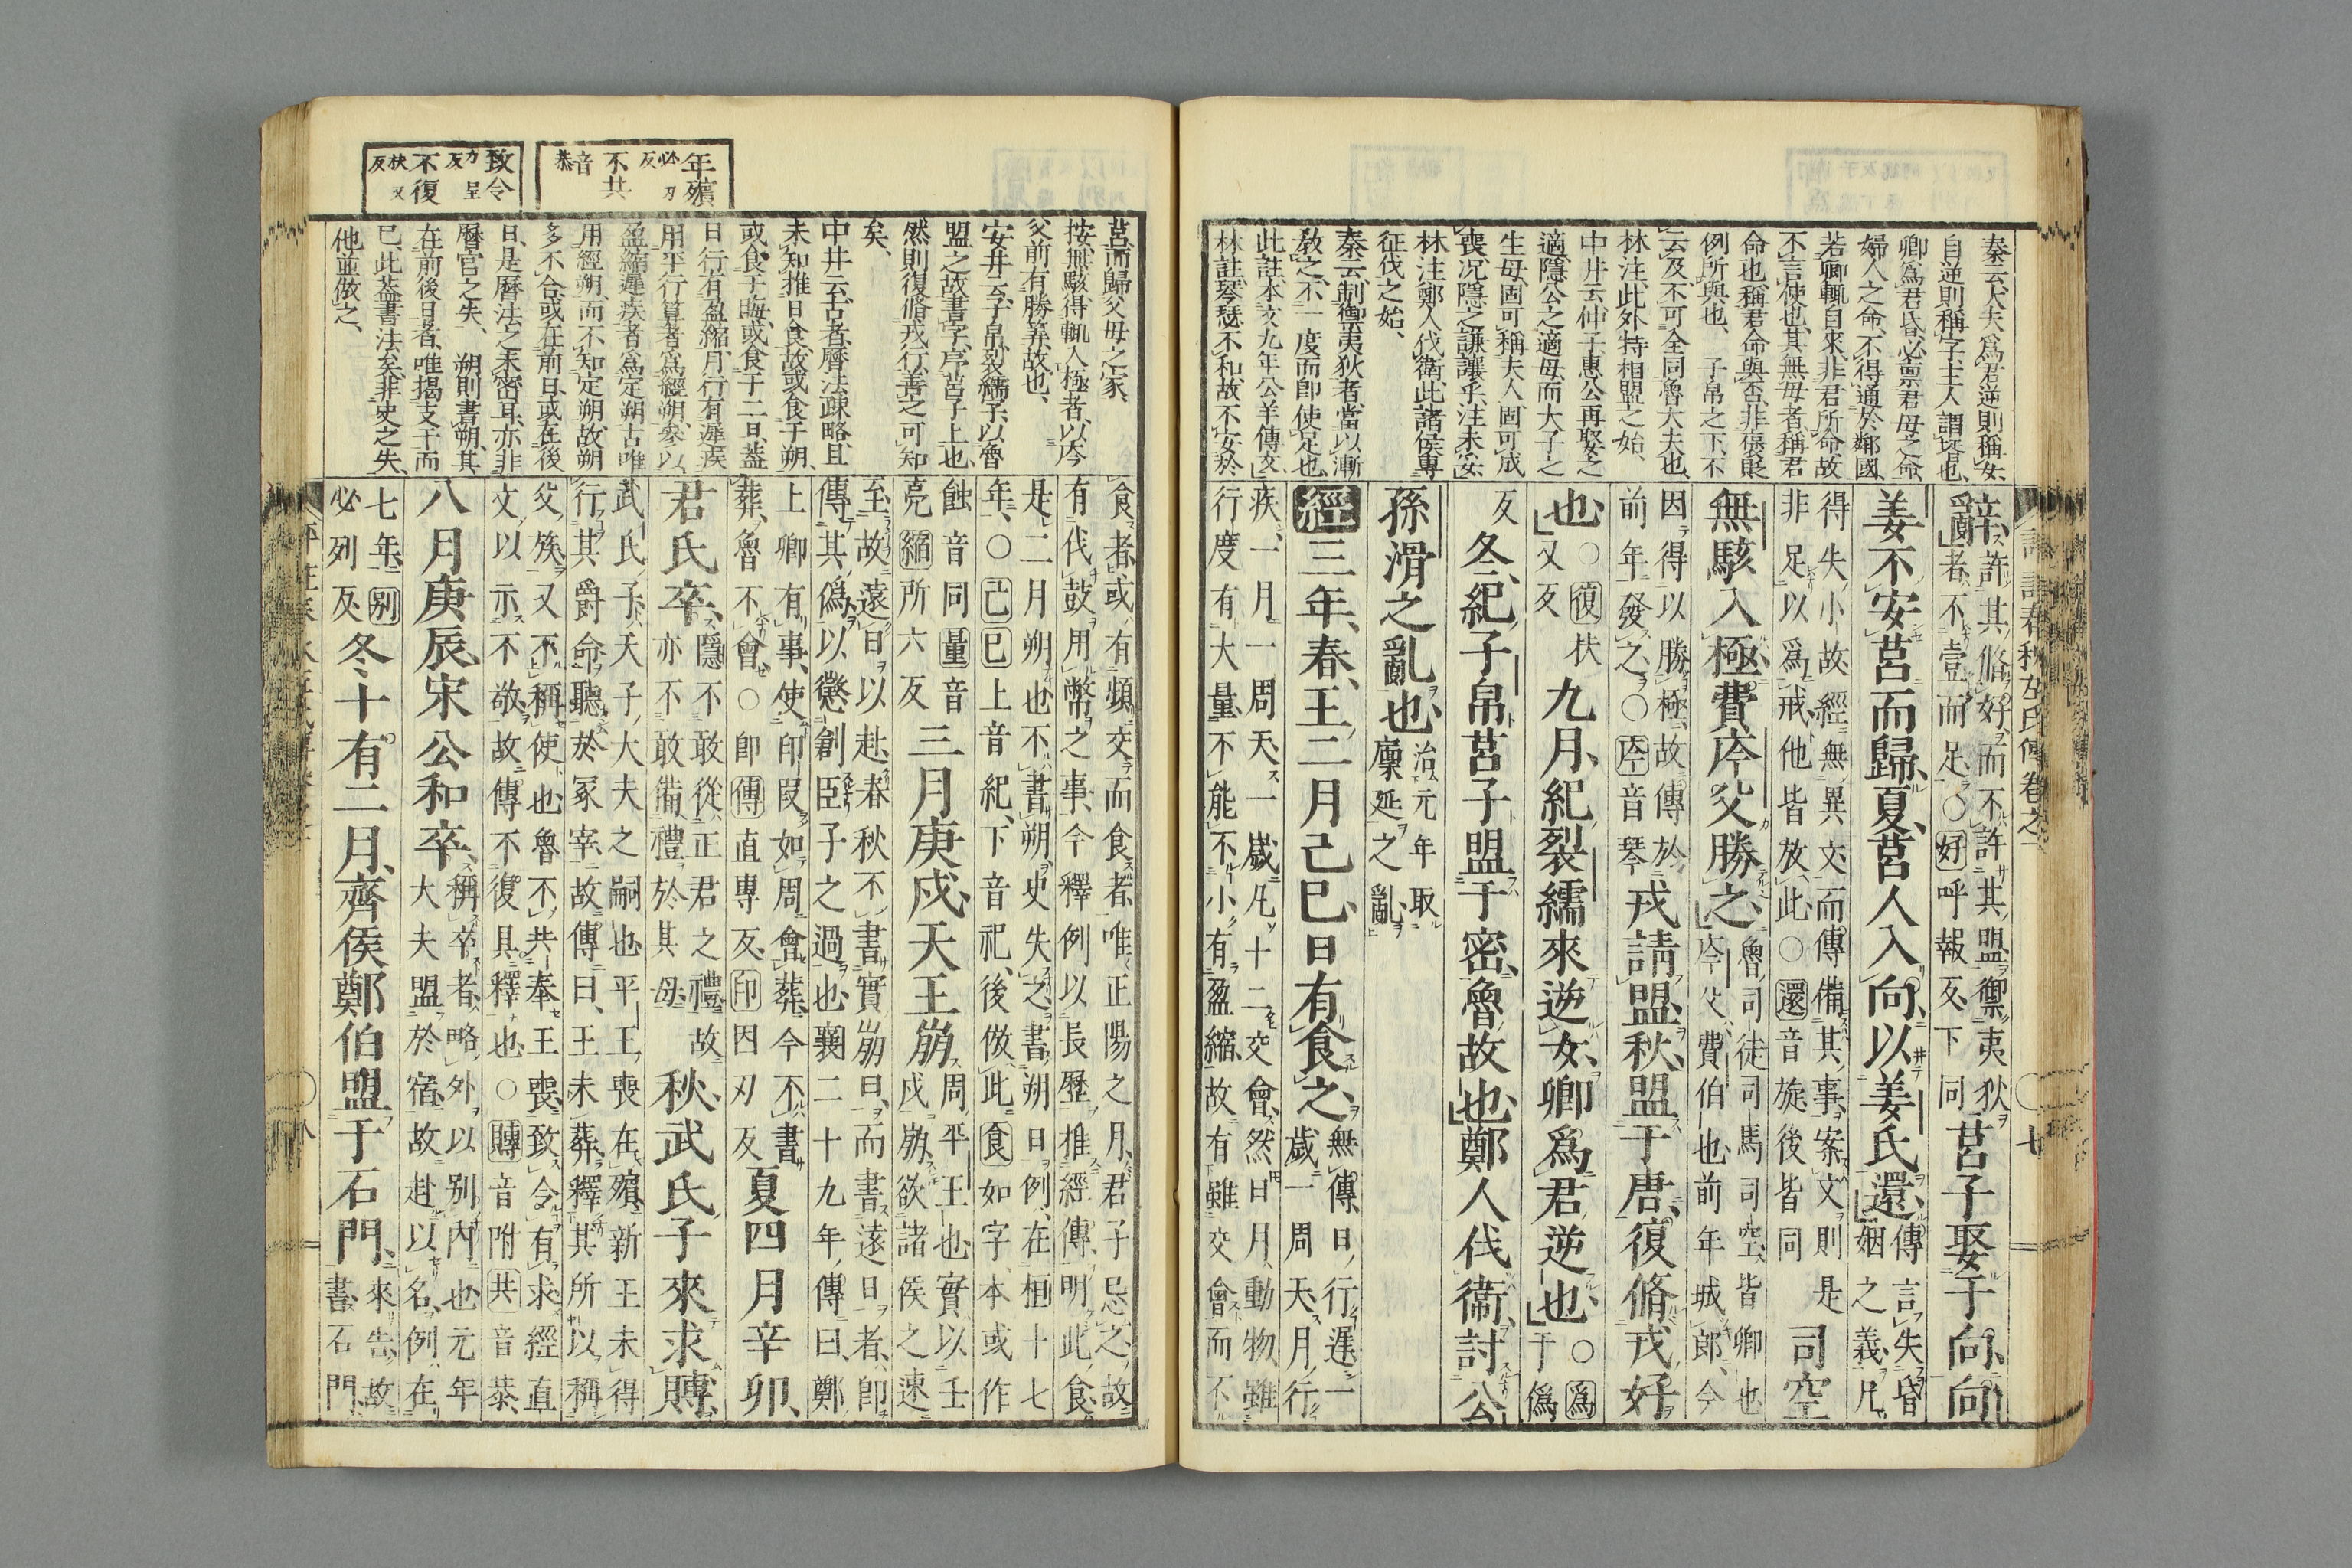 秦云、大夫、爲君逆則稱女、
自逆則稱字、主人謂壻也、
卿爲君昏、必稟君母之命、
婦人之命、不得通於鄰國、
若卿輒自來、非君所命、故
不言使也、其無母者、稱君
命也、稱君命與否、非襃貶
例所與也、 子帛之下、不
云及、不可全同魯大夫也、
林注、此外特相盟之始、
中井云、仲子惠公再娶之
適、隱公之適母、而大子之
生母、固可稱夫人、固可成
喪、况隱之謙讓乎、注未安、
林注、鄭人伐衛、此諸侯專
征伐之始、
秦云、制禦夷狄者、當以漸
敎之、不一度而卽使足也、
此註本文九年公羊傳文、
林註、琴瑟不和、故不安於
辭、許其脩好、而不許其盟、禦夷狄
者、不壹而足、○好呼報反、下同莒子娶于向、向
姜不安莒而歸、夏、莒人入向、以姜氏還、傳言失昏
姻之義、凡
得失小故、經無異文、而傳備其事、案文則是
非足以爲戒、他皆放此、○還音旋、後皆同司空
無駭入極、費庈父勝之、魯司徒司馬司空、皆卿也
庈父費伯也、前年城郎、今
因得以勝極、故傳於
前年發之、○庈音琴戎請盟、秋、盟于唐、復脩戎好
也、○復扶
又反九月、紀裂繻來逆女、卿爲君逆也、○爲
于僞
反冬、紀子帛莒子盟于密、魯故也、鄭人伐衞、討公
孫滑之亂也、治元年取
廩延之亂
經三年、春、王二月己巳、日有食之、無傳、日行遲、一
歲一周天、月行
疾、一月一周天、一歲凡十二交會、然日月動物、雖
行度有大量、不能不小有盈縮、故有雖交會而不
評註春秋左氏傳卷之一
七
年殯
必刃反
不共
音恭
致令
力呈反
不復
扶又反
莒而歸父母之家、
按、無駭得輒入極者、以庈
父前有勝美故也、
安井云、子帛、裂繻字、以魯
盟之、故書字、序莒子上也、
然則復脩戎、行善之可知
矣、
中井云、古者曆法疎略、且
未知推日食、故或食于朔、
或食于晦、或食于二日、蓋
日行有盈縮、月行有遲疾
用平行算者、爲經朔、參以
盈縮遲疾者、爲定朔、古唯
用經朔、而不知定朔、故朔
多不合、或在前日、或在後
日、是曆法之未密耳、亦非
曆官之失、 朔則書朔、其
在前後日者、唯揭支干而
已、此蓋書法矣、非史之失、
他並倣之、
食者、或有頻交而食者、唯正陽之月、君子忌之、故
有伐鼓用幣之事、今釋例以長歷推經傳、明此食
是二月朔也、不書朔、史失之、書朔日例在桓十七
年、○己巳上音紀、下音祀、後倣此、食如字、本或作
蝕、音同、量音
亮、縮所六反三月庚戌、天王崩、周平王也、實以壬
戌崩、欲諸侯之速
至、故遠日以赴、春秋不書實崩日、而書遠日者、卽
傳其僞、以懲創臣子之過也、襄二十九年、傳曰、鄭
上卿有事、使印段如周會葬、今不書
葬、魯不會、○卽傳直專反、印因刃反夏四月辛卯、
君氏卒、隱不敢從正君之禮、故
亦不敢備禮於其母秋、武氏子來求賻、
武氏子、天子大夫之嗣也、平王喪在殯、新王未得
行其爵命、聽於冢宰、故傳曰、王未葬、釋其所以稱
父族、又不稱使也、魯不共奉王喪、致令有求、經直
文以示不敬、故傳不復具釋也、○賻音附、共音恭、
八月庚辰、宋公和卒、稱卒者、略外以別內也、元年
大夫盟於宿、故赴以名、例在
七年、別
必列反冬十有二月、齊侯鄭伯盟于石門、來告、故
書、石門、
八